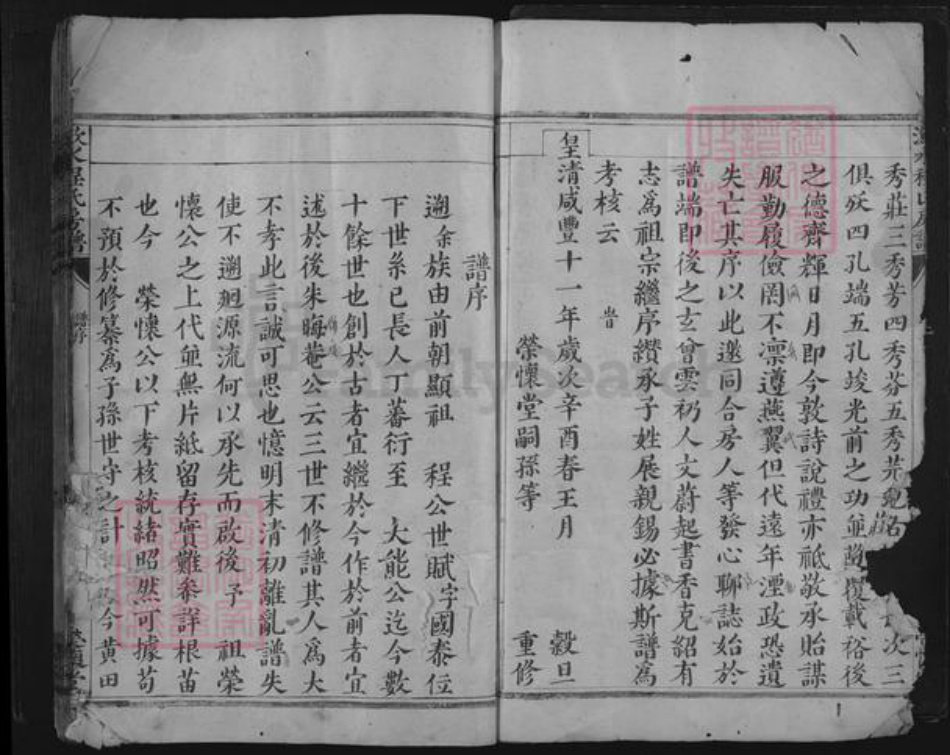 秀莊三秀芳四秀芬五秀芹
次三
俱殀四孔端五孔竣光前之功並蓋覆載裕後
之德齊輝日月即今敦詩說禮亦祗敬承貽謀
服勤履儉罔不凛遵燕翼但代遠年湮政恐遺
失亡其序以此邀同合房人等發心聊誌始於
譜端即後之玄曾雲礽人文蔚起書香克紹有
志為祖宗繼序纘承子姓展親錫必據斯譜為
考核云 旹
皇清咸豐十一年歲次辛酉春王月 穀旦
榮懷堂嗣孫等 重修
譜序
遡余族由前朝顯祖 程公世賦字國泰位
下世系已長人丁蕃衍至 大能公迄今數
十餘世也創於古者宜繼於今作於前者宜
述於後朱晦菴公云三世不修譜其人為大
不孝此言誠可思也憶明末清初離亂譜失
使不遡廻源流何以承先而啟後予 祖榮
懷公之上代並無片紙留存實難參詳根苗
也今 榮懷公以下考核統緒昭然可據苟
不預於修纂為子孫世守之計 今黄田
程氏房譜
譜序
FamilySearch